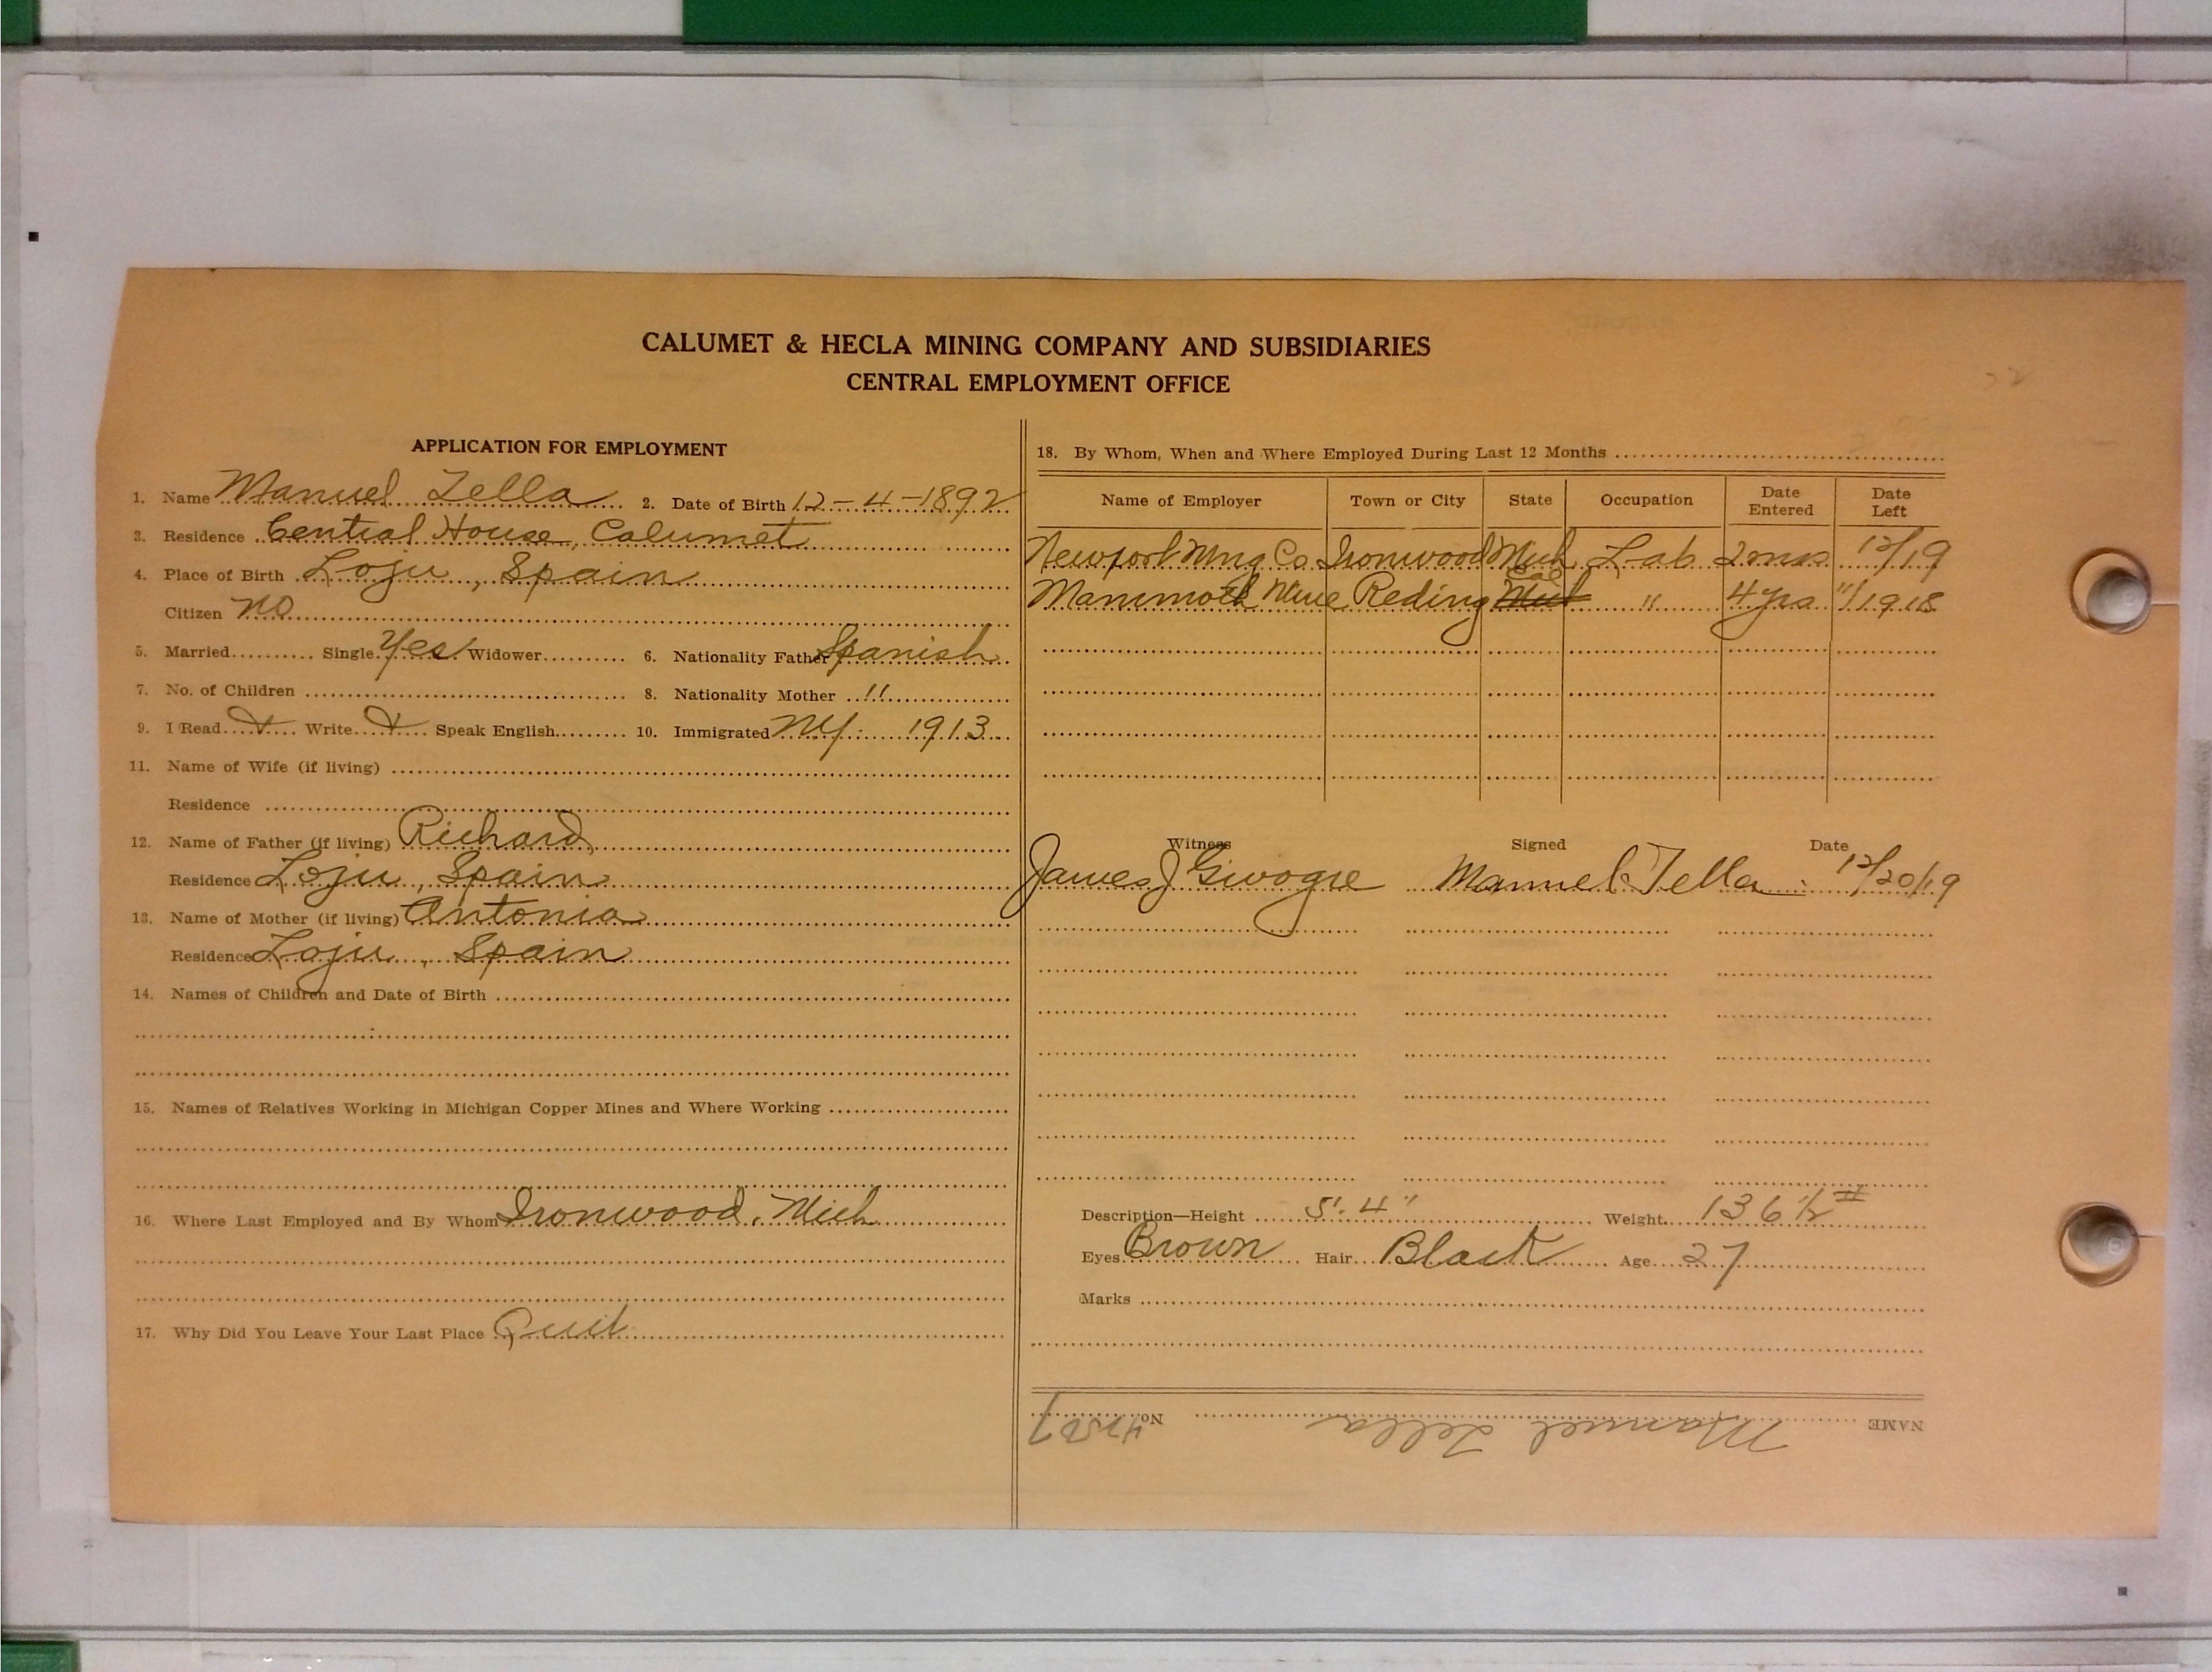 CALUMET & HECLA MINING COMPANY AND SUBSIDIARIES
CENTRAL EMPLOYMENT OFFICE
APPLICATION FOR EMPLOYMENT
1. Name Manuel Tella 2. Date of Birth 12-4-1892
3. Residence Central House, Calumet
4. Place of Birth Loju, Spain
Citizen no
5. Married Single Yes Widower 6. Nationality Father Spanish
7. No. of Children 8. Nationality Mother "
9. I Read Write Speak English 10. Immigrated NY. 1913
11. Name of Wife (if living)
Residence
12. Name of Father (if living) Richard,
Residence Loju, Spain
13. Name of Mother (if living) Antonia
Residence Loju, Spain
14. Names of Children and Date of Birth
15. Names of Relatives Working in Michigan Copper Mines and Where Working
16. Where Last Employed and By Whom Ironwood, Mich
17. Why Did You Leave Your Last Place Quit
18. By Whom, When and Where Employed During Last 12 Months
Name of Employer Town or City State Occupation Date Entered Date Left
Newport Mng Co Ironwood Mich Lab 2 mos 12/19
Mammoth Mine Reding Cal Mich " 4 yrs 11/1918
Witness Signed Date
James J Manuel Tella 12/20/19
Description—Height 5'. 4" Weight 136 1/2 #
Eyes Brown Hair Black Age 27
Marks
NAME Manuel Tella No.